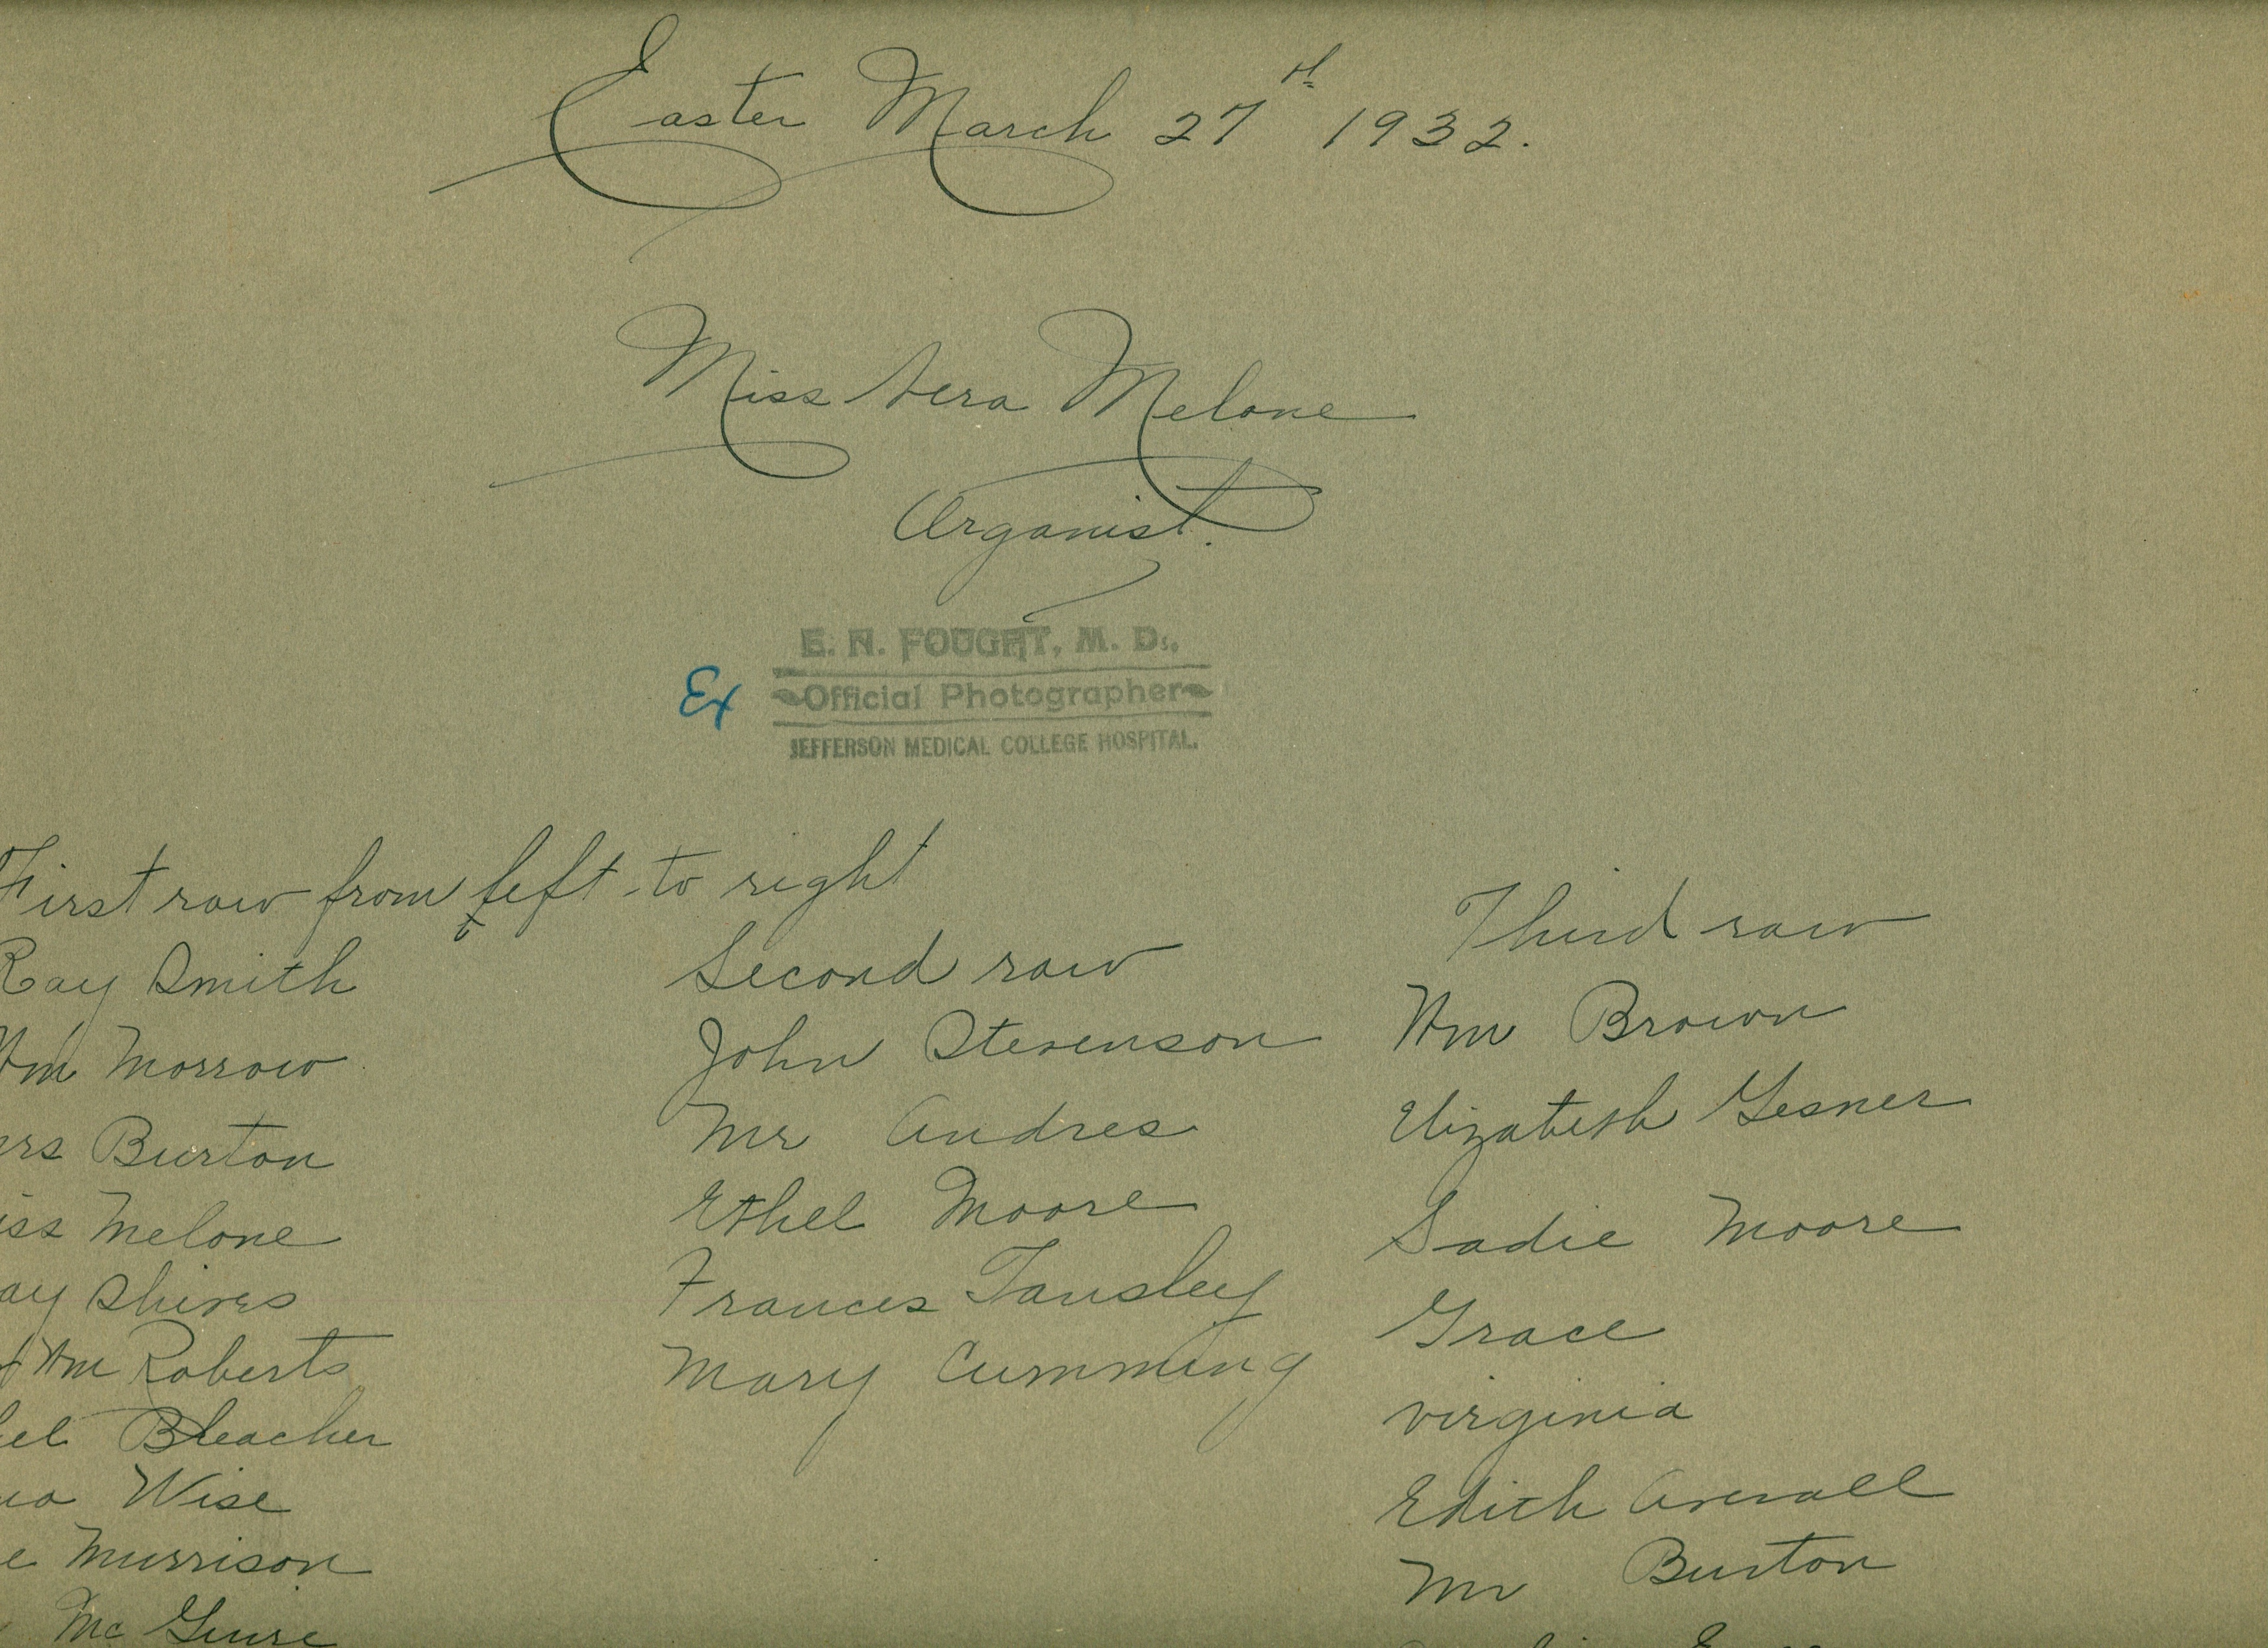 Easter March 27th 1932.
Miss Vera Melone
Organist.
E. H. FOUGHT, M. D.,
Ex Official Photographer
JEFFERSON MEDICAL COLLEGE HOSPITAL.
First row from left to right
Ray Smith
Wm Morrow
rs Burton
iss Melone
ay Shires
Wm Roberts
el Bleacher
Wise
e Murrison
Mc Guire
Second row
John Stevenson
Mr Andres
Ethel Moore
Frances Tansley
Mary Cumming
Third row
Wm Brown
Elizabeth Gesner
Sadie Moore
Grace
virginia
Edith Averall
Mr Burton